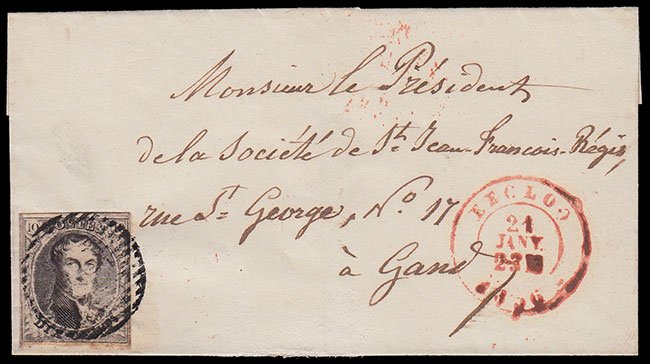 Monsieur le Président
de la Société de St. Jean-François-Régis,
rue St. George, No 17
à Gand
10 POSTES
EECLOO
21
JANV.